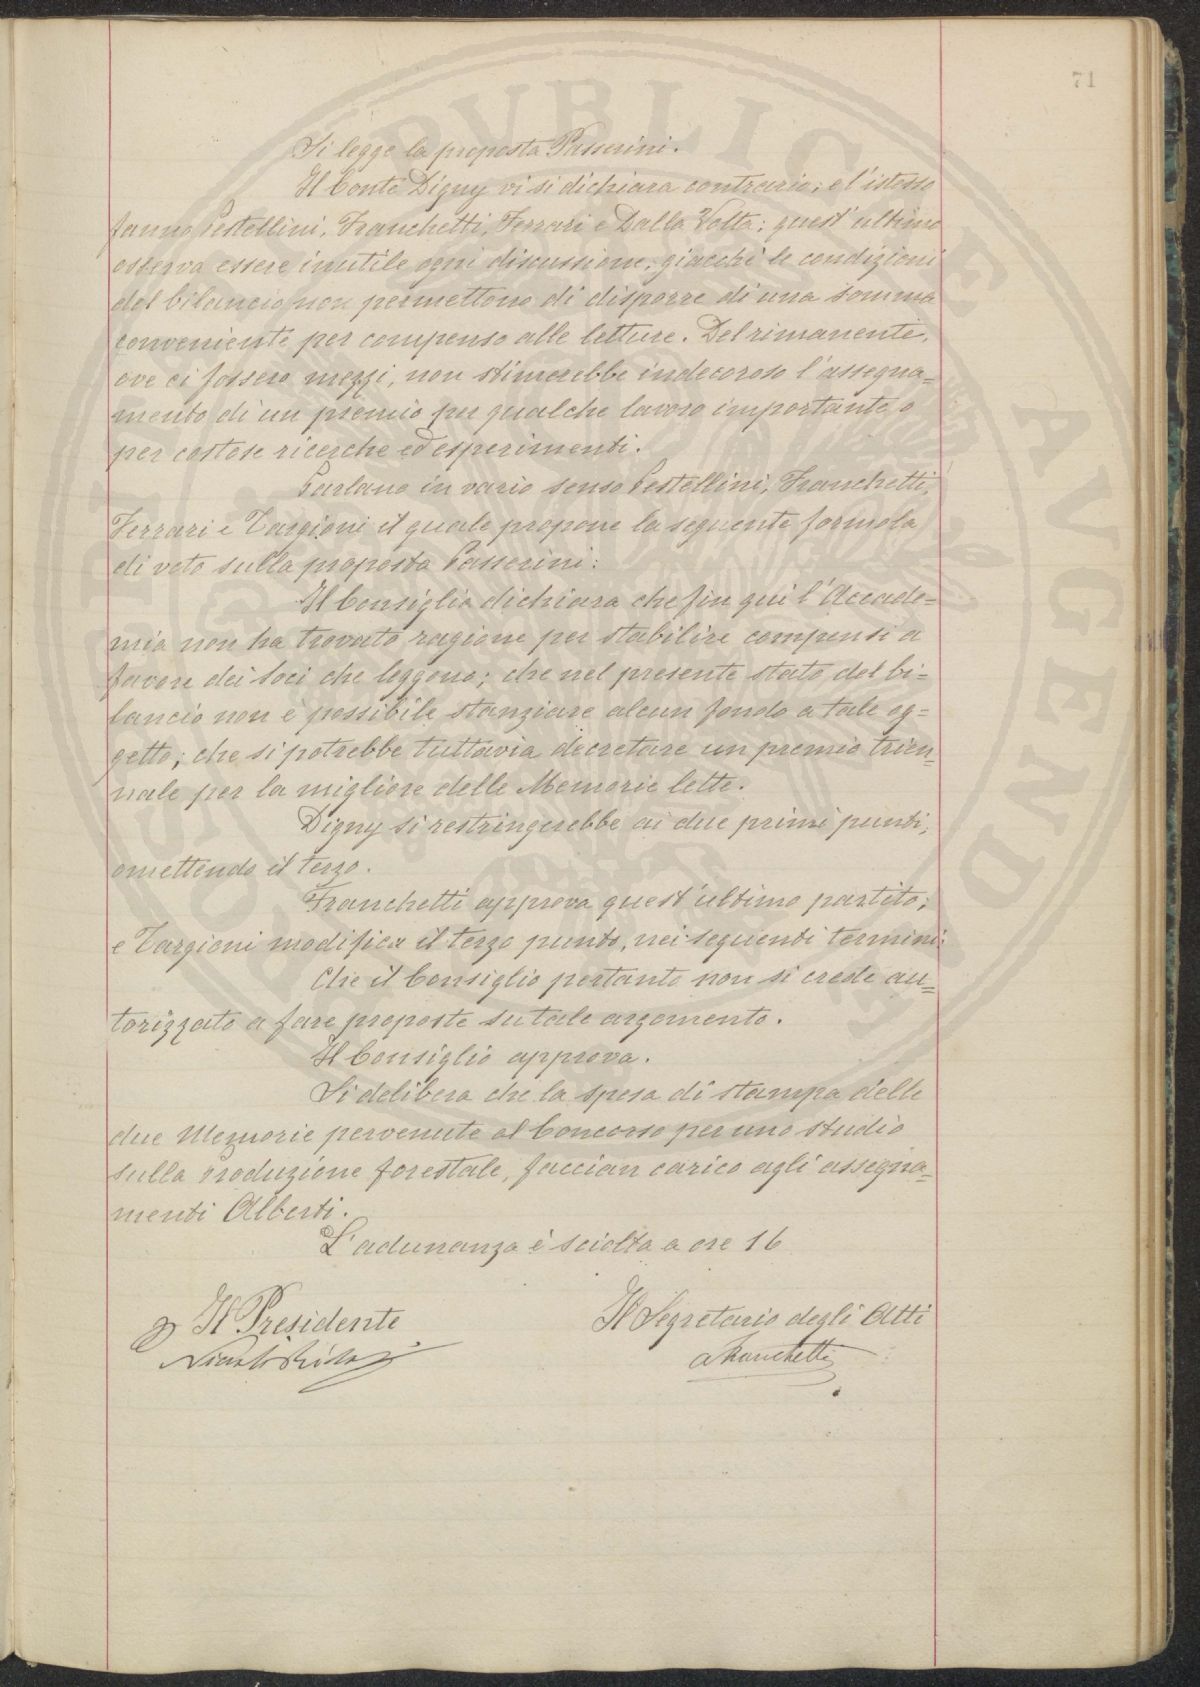 71
Si legge la proposta Passerini.
Il Conte Digny vi si dichiara contrario; e l'istesso
fanno Pestellini, Franchetti, Ferrari e Dalla Volta; quest'ultimo
osserva essere inutile ogni discussione, giacchè le condizioni
del bilancio non permettono di disporre di una somma
conveniente per compenso alle letture. Del rimanente,
ove ci fossero mezzi, non stimerebbe indecoroso l'assegna=
mento di un premio per qualche lavoro importante, o
per costose ricerche ed esperimenti.
Parlano in vario senso Pestellini, Franchetti,
Ferrari e Targioni il quale propone la seguente formola
di voto sulla proposta Passerini:
Il Consiglio dichiara che fin qui l'Accade=
mia non ha trovato ragione per stabilire compensi a
favore dei Soci che leggono; che nel presente stato del bi=
lancio non è possibile stanziare alcun fondo a tale og=
getto; che si potrebbe tuttavia decretare un premio trien=
nale per la migliore delle Memorie lette.
Digny si restringerebbe ai due primi punti,
omettendo il terzo.
Franchetti approva quest'ultimo partito;
e Targioni modifica il terzo punto, nei seguenti termini:
Che il Consiglio pertanto non si crede au=
torizzato a fare proposte su tale argomento.
Il Consiglio approva.
Si delibera che la spesa di stampa delle
due Memorie pervenute al Concorso per uno studio
sulla produzione forestale, faccian carico agli assegna=
menti Alberti.
L'adunanza è sciolta a ore 16
Il Presidente
Il Segretario degli Atti
AFranchetti
PUBLICAE
AUGENDAE